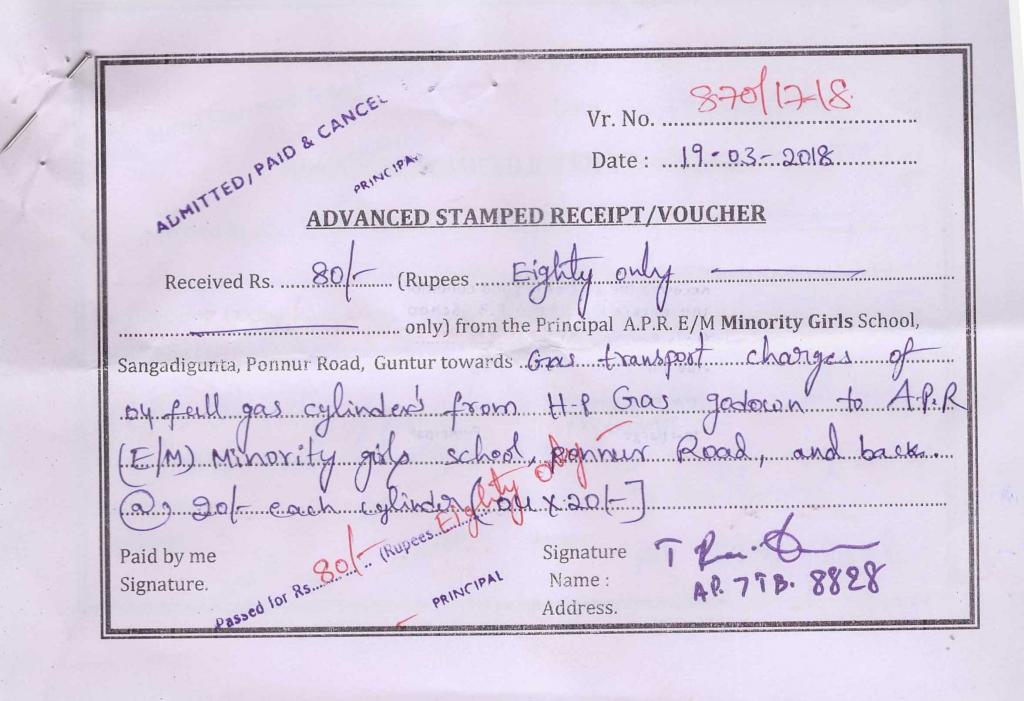 ADMITTED, PAID & CANCEL
PRINCIPA
Vr. No. 870/17-18.
Date : 19-03-2018
ADVANCED STAMPED RECEIPT/VOUCHER
Received Rs. 80/- (Rupees Eighty only
only) from the Principal A.P.R. E/M Minority Girls School,
Sangadigunta, Ponnur Road, Guntur towards Gas transport charges of
04 full gas cylinder's from H.P Gas godown to A.P.R
(E/M) Minority girls school, Ponnur Road, and back
@ 20/- each cylinder (04 x 20/-]
Paid by me
Signature.
Passed for Rs. 80/- (Rupees Eighty only
PRINCIPAL
Signature
Name :
AP. 7 TB. 8828
Address.